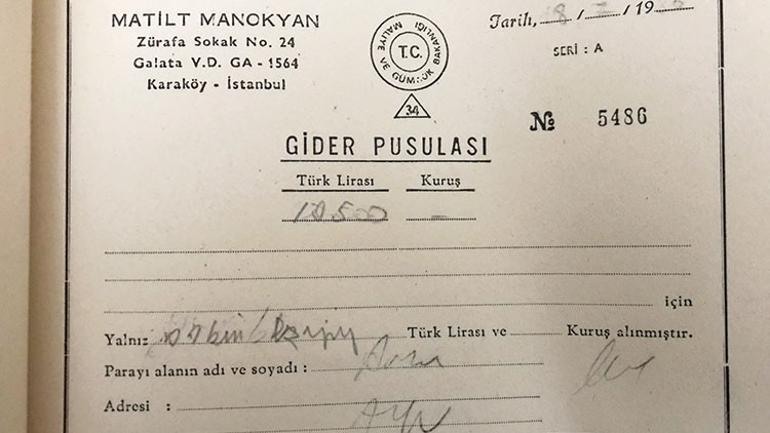 MATİLT MANOKYAN
Zürafa Sokak No. 24
Galata V.D. GA - 1564
Karaköy - İstanbul
T.C.
MALİYE VE GÜMRÜK BAKANLIĞI
34
Tarih, 8 / / 19
SERİ : A
№ 5486
GİDER PUSULASI
Türk Lirası Kuruş
10500 —
için
Yalnız Türk Lirası ve Kuruş alınmıştır.
Parayı alanın adı ve soyadı :
Adresi :